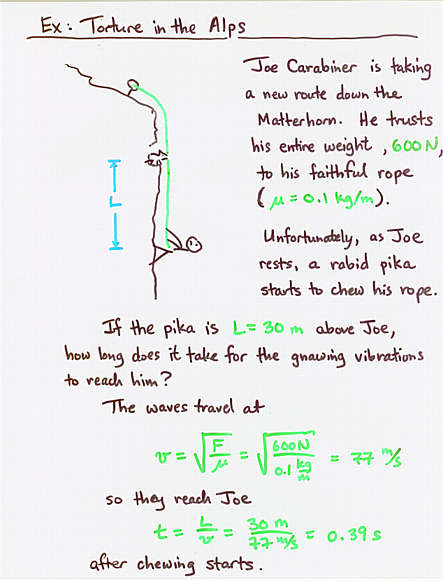 Ex: Torture in the Alps
Joe Carabiner is taking
a new route down the
Matterhorn. He trusts
his entire weight, 600 N,
to his faithful rope
(μ = 0.1 kg/m).
L
Unfortunately, as Joe
rests, a rabid pika
starts to chew his rope.
If the pika is L = 30 m above Joe,
how long does it take for the gnawing vibrations
to reach him?
The waves travel at
v = √(F/μ) = √(600 N / 0.1 kg/m) = 77 m/s
so they reach Joe
t = L/v = 30 m / 77 m/s = 0.39 s
after chewing starts.